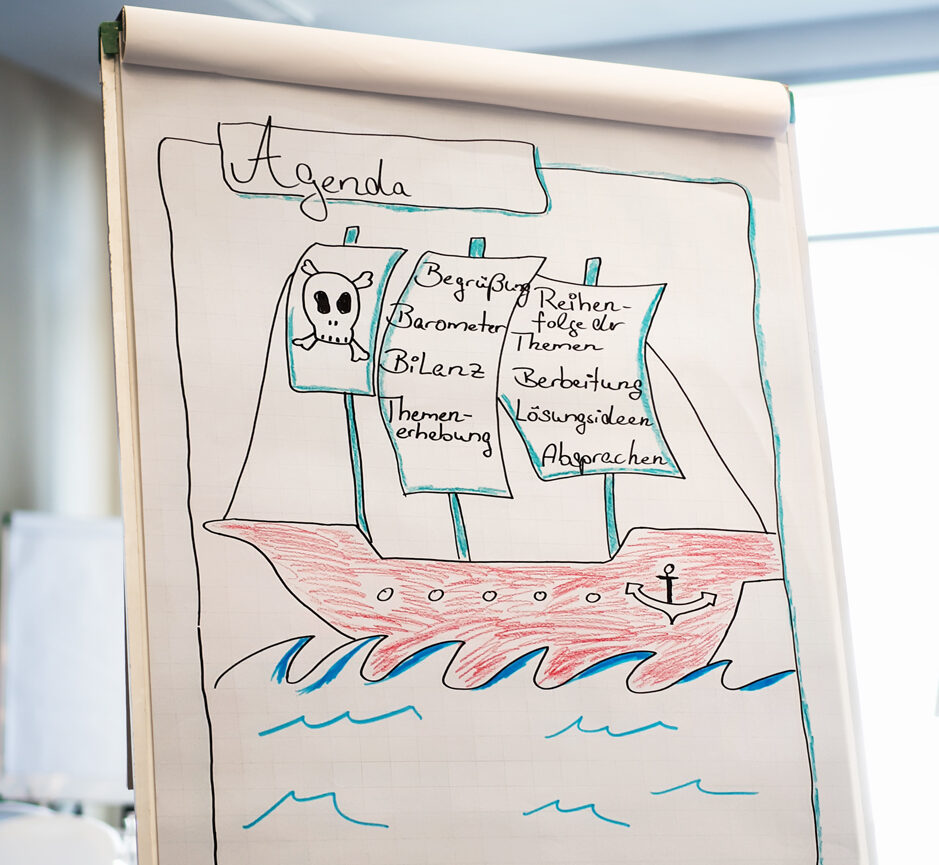 Agenda
Begrüßung
Barometer
Bilanz
Themen-
erhebung
Reihen-
folge der
Themen
Berbeitung
Lösungsideen
Absprachen